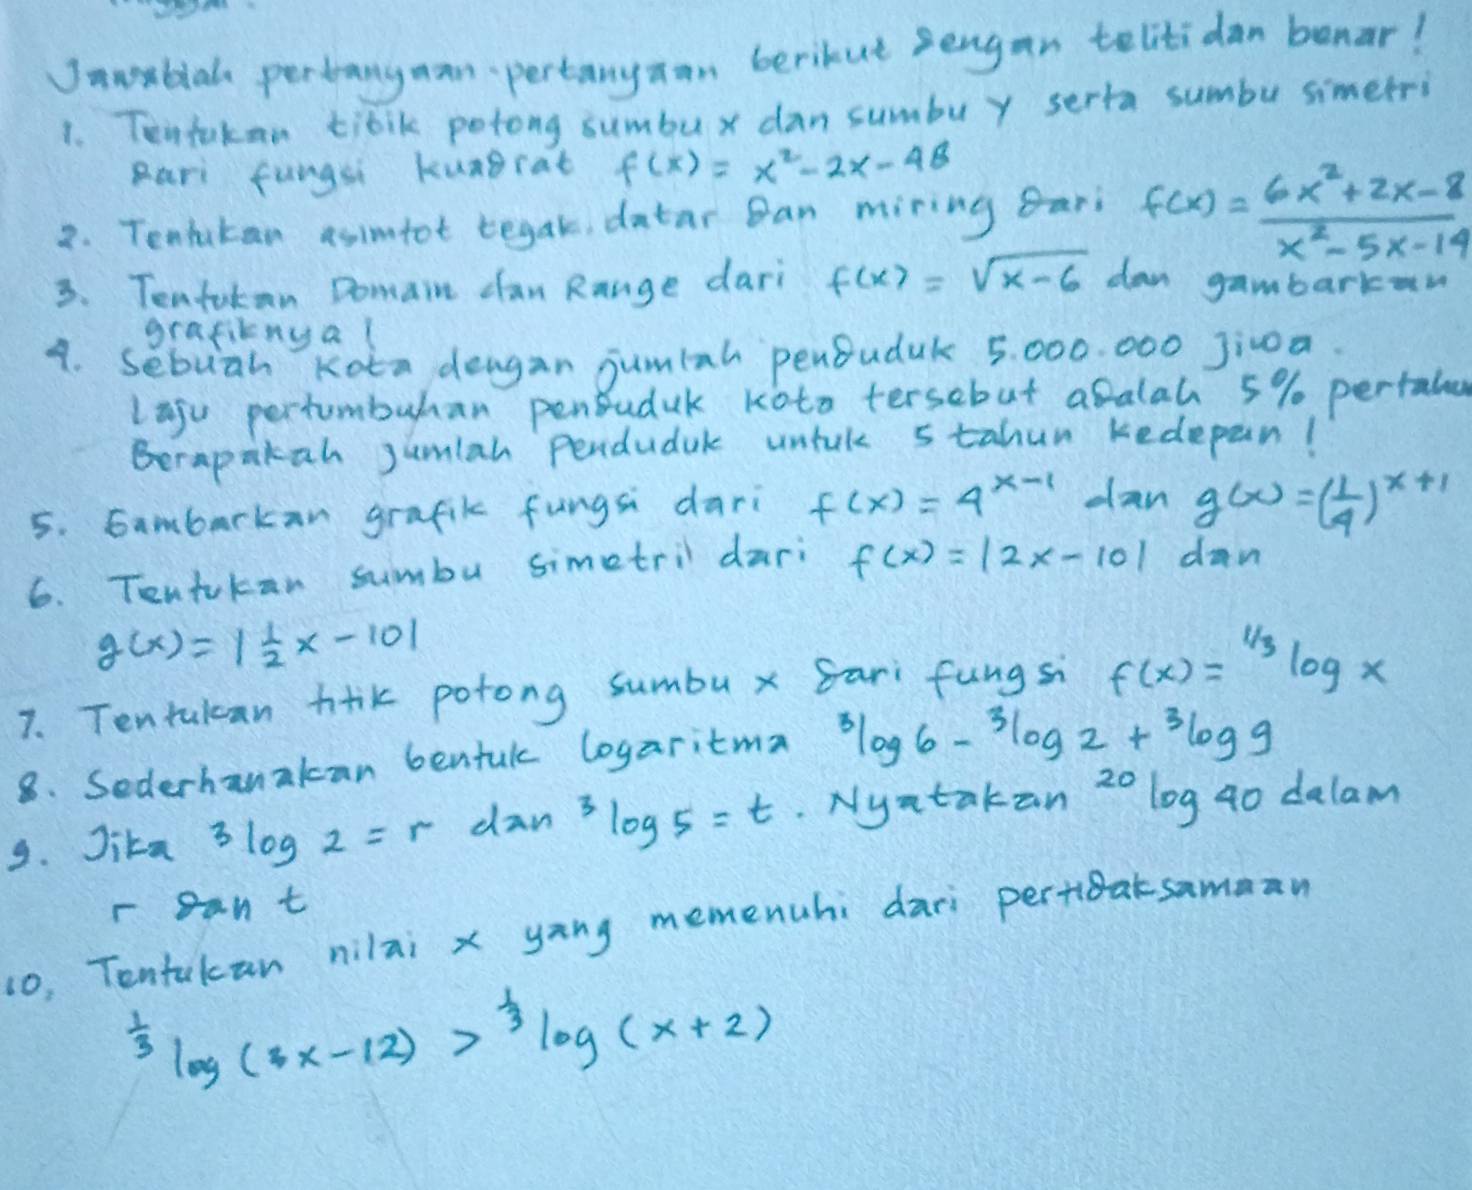 Jawablah pertanyaan-pertanyaan berikut dengan teliti dan benar!
1. Tentukan titik potong sumbu x dan sumbu y serta sumbu simetri
dari fungsi kuadrat f(x) = x² - 2x - 48
2. Tentukan asimtot tegak, datar dan miring dari f(x) = (6x² + 2x - 8)/(x² - 5x - 14)
3. Tentukan Domain dan Range dari f(x) = √(x-6) dan gambarkan
grafiknya!
4. Sebuah Kota dengan jumlah penduduk 5.000.000 Jiwa.
Laju pertumbuhan penduduk kota tersebut adalah 5% pertahun
Berapakah jumlah Penduduk untuk 5 tahun kedepan!
5. Gambarkan grafik fungsi dari f(x) = 4^(x-1) dan g(x) = (1/4)^(x+1)
6. Tentukan sumbu simetri dari f(x) = |2x - 10| dan
g(x) = |½x - 10|
7. Tentukan titik potong sumbu x dari fungsi f(x) = ¹/³ log x
8. Sederhanakan bentuk logaritma ³log 6 - ³log 2 + ³log 9
9. Jika ³log 2 = r dan ³log 5 = t. Nyatakan ²⁰log 40 dalam
r dan t
10. Tentukan nilai x yang memenuhi dari pertidaksamaan
¹/³ log (3x-12) > ¹/³ log (x+2)